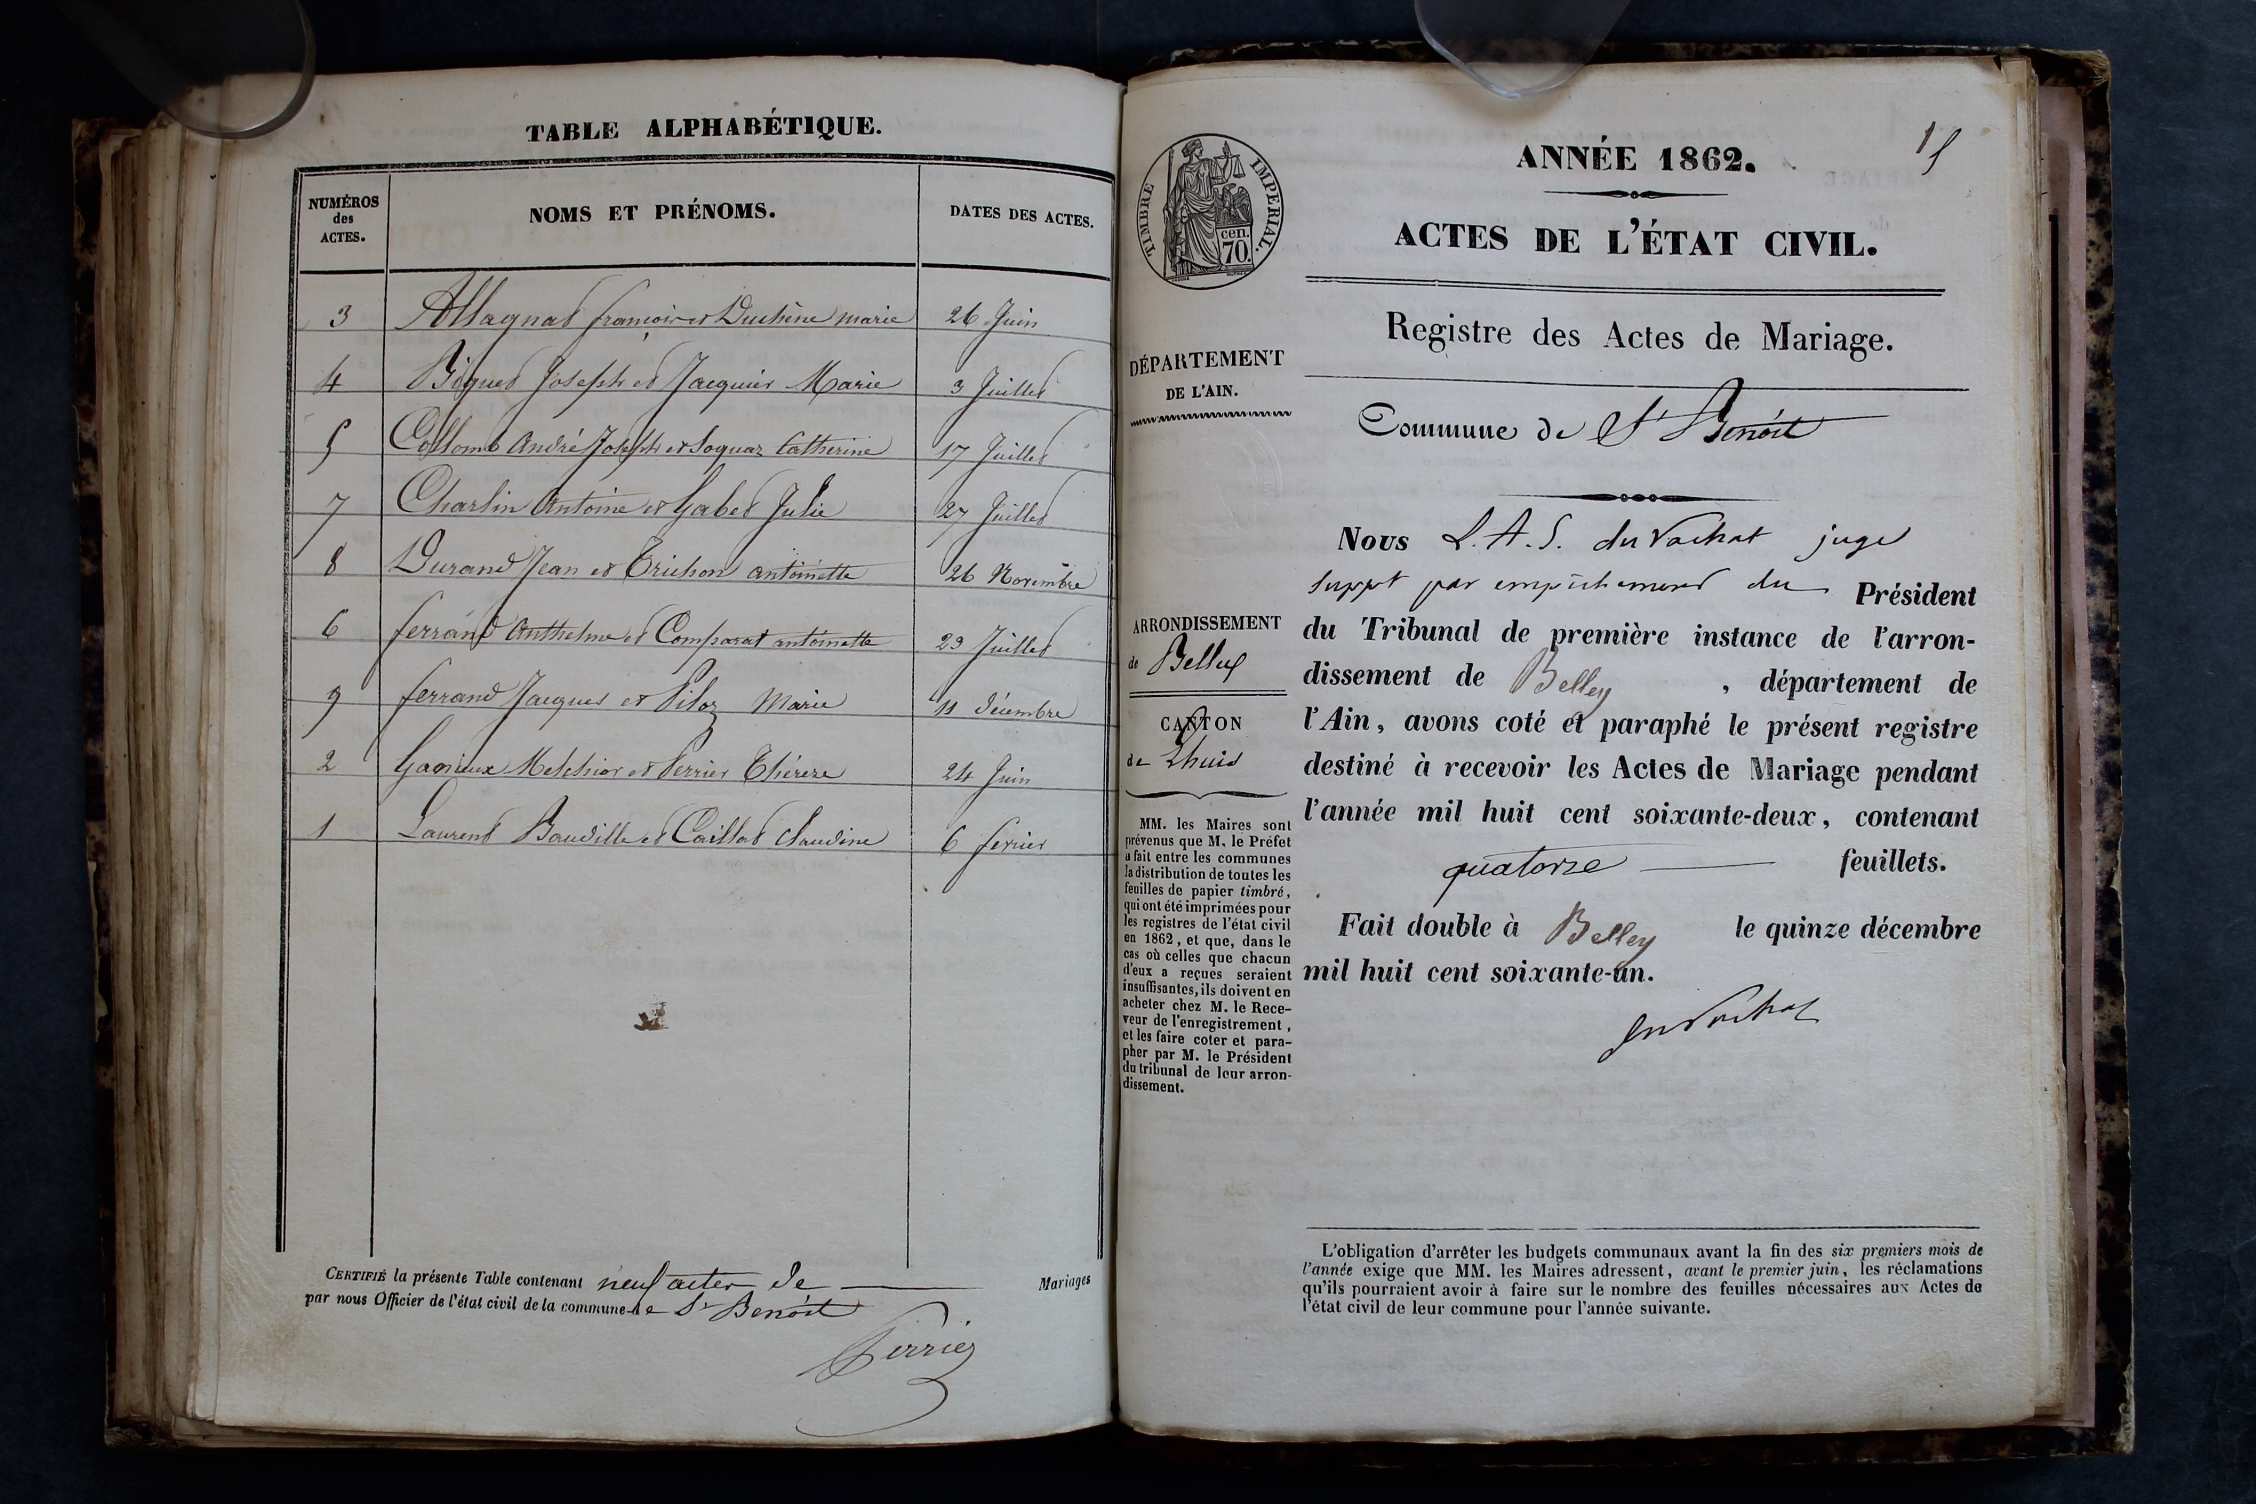 TABLE ALPHABÉTIQUE.
NUMÉROS
des
ACTES.
NOMS ET PRÉNOMS.
DATES DES ACTES.
3 Allagnat françois et Duchêne marie 26 Juin
4 Biguet Joseph et Jacquier Marie 3 Juillet
5 Collomb André Joseph et Soquaz Catherine 17 Juillet
7 Charlin Antoine et Gabet Julie 27 Juillet
8 Durand Jean et Trichon antoinette 26 Novembre
6 ferrand Anthelme et Comparat antoinette 23 Juillet
9 ferrand Jacques et Piloz Marie 11 décembre
2 Melchior et Perrier Thérèse 24 Juin
1 Laurent Baudille et Caillat Claudine 6 fevrier
CERTIFIÉ la présente Table contenant neuf actes de Mariages
par nous Officier de l'état civil de la commune de St Benoit
Perrier
15
TIMBRE IMPERIAL.
cen.
70.
ANNÉE 1862.
ACTES DE L'ÉTAT CIVIL.
Registre des Actes de Mariage.
DÉPARTEMENT
DE L'AIN.
Commune de St Benoit
ARRONDISSEMENT
de Belley
CANTON
de Lhuis
MM. les Maires sont
prévenus que M. le Préfet
a fait entre les communes
la distribution de toutes les
feuilles de papier timbré,
qui ont été imprimées pour
les registres de l'état civil
en 1862, et que, dans le
cas où celles que chacun
d'eux a reçues seraient
insuffisantes, ils doivent en
acheter chez M. le Rece-
veur de l'enregistrement,
et les faire coter et para-
pher par M. le Président
du tribunal de leur arron-
dissement.
Nous L. A. S. du Vachat juge
suppt par empêchement du Président
du Tribunal de première instance de l'arron-
dissement de Belley, département de
l'Ain, avons coté et paraphé le présent registre
destiné à recevoir les Actes de Mariage pendant
l'année mil huit cent soixante-deux, contenant
quatorze feuillets.
Fait double à Belley le quinze décembre
mil huit cent soixante-un.
du Vachat
L'obligation d'arrêter les budgets communaux avant la fin des six premiers mois de
l'année exige que MM. les Maires adressent, avant le premier juin, les réclamations
qu'ils pourraient avoir à faire sur le nombre des feuilles nécessaires aux Actes de
l'état civil de leur commune pour l'année suivante.